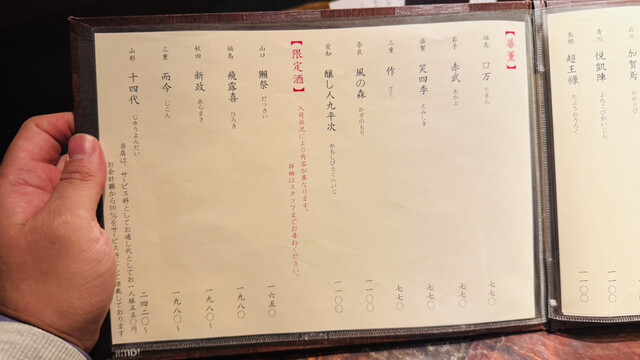 石川 加賀鳶 かがとび 一一〇〇
香川 悦凱陣 よろこびがいじん 一一〇〇
島根 超王祿 ちょうおうろく 一一〇〇
【華薫】
福島 口万 ろまん 七七〇
岩手 赤武 あかぶ 七七〇
滋賀 笑四季 えみしき 七七〇
三重 作 ざく 七七〇
奈良 風の森 かぜのもり 一一〇〇
愛知 醸し人九平次 かもしびとくへいじ 一一〇〇
【限定酒】 入荷状況により内容が異なります。
詳細はスタッフまでお尋ねください。
山口 獺祭 だっさい 一六五〇
福島 飛露喜 ひろき 一九八〇
秋田 新政 あらまさ 一九八〇～
三重 而今 じこん 一九八〇～
山形 十四代 じゅうよんだい 二四二〇～
当店は、サービス料としてお通し代としてお一人様五五〇円
お会計額から10%をサービス料として頂戴しております